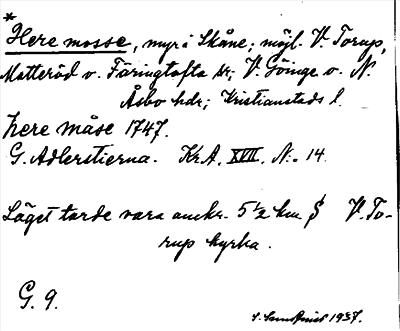 *
Here mosse, myr i Skåne; möjl. V. Torup,
Matteröd o. Färingtofta snr; V. Göinge o. N.
Åsbo hdr; Kristianstads l.
here måse 1747.
G. Adlerstierna. Kr.A. XVII. N:o 14.
Läget torde vara omkr. 5 1/2 km S V. To-
rup kyrka.
G. 9.
1937.